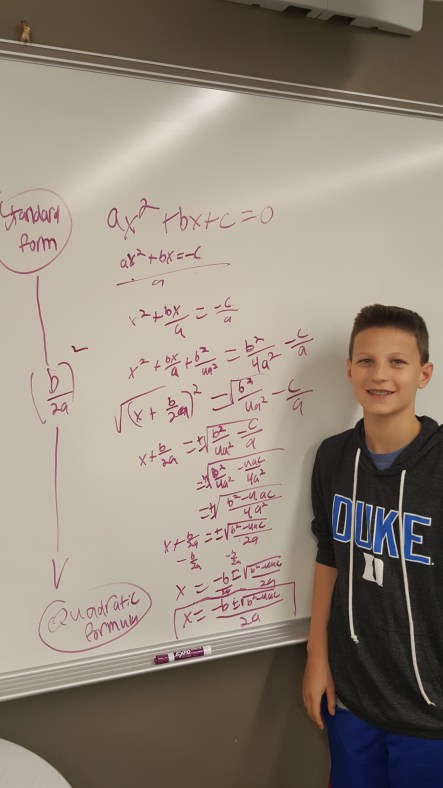 Standard
form
(b/2a)²
Quadratic
formula
ax² + bx + c = 0
ax² + bx = -c
a
x² + bx/a = -c/a
x² + bx/a + b²/4a² = b²/4a² - c/a
√(x + b/2a)² = √b²/4a² - c/a
x + b/2a = ±√b²/4a² - c/a
= ±√b²/4a² - 4ac/4a²
= ±√b²-4ac/4a²
x + b/2a = ±√b²-4ac/2a
- b/2a - b/2a
x = -b/2a ± √b²-4ac/2a
x = -b ± √b²-4ac/2a
EXPO
DUKE
D